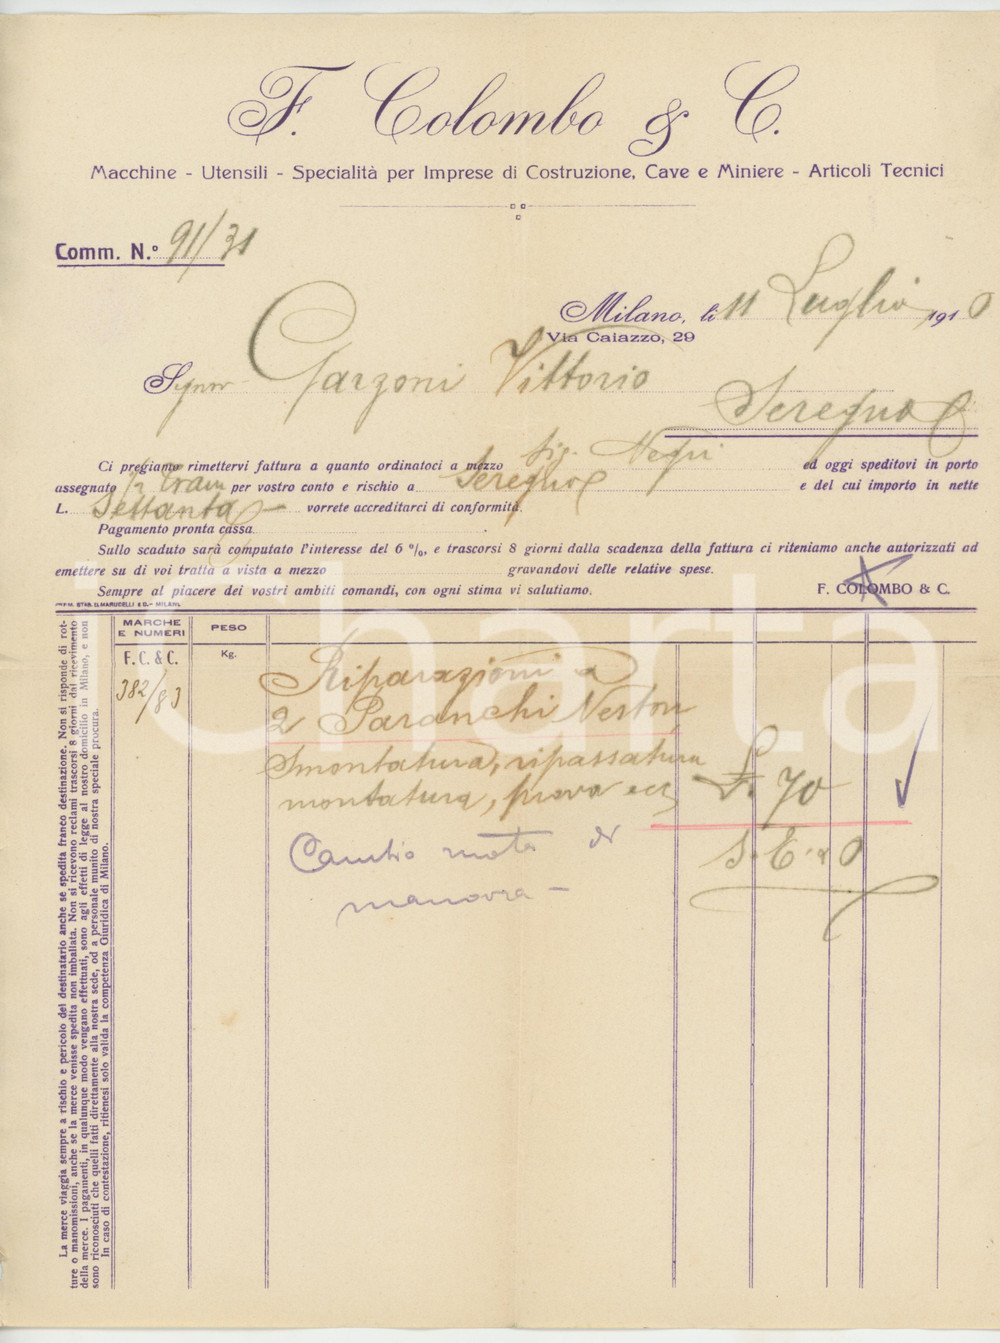 F. Colombo & C.
Macchine - Utensili - Specialità per Imprese di Costruzione, Cave e Miniere - Articoli Tecnici
Comm. N.º 91/31
Milano, li 11 Luglio 1910
Via Caiazzo, 29
Signor Garzoni Vittorio
Seregno
Ci pregiamo rimettervi fattura a quanto ordinatoci a mezzo Sig. Negri ed oggi speditovi in porto
assegnato Tram per vostro conto e rischio a Seregno e del cui importo in nette
L. Settanta vorrete accreditarci di conformità.
Pagamento pronta cassa
Sullo scaduto sarà computato l'interesse del 6 %, e trascorsi 8 giorni dalla scadenza della fattura ci riteniamo anche autorizzati ad
emettere su di voi tratta a vista a mezzo gravandovi delle relative spese.
Sempre al piacere dei vostri ambiti comandi, con ogni stima vi salutiamo. F. COLOMBO & C.
PREM. STAB. G. MARUCELLI & C. - MILANO.
MARCHE E NUMERI
PESO
F. C. & C.
Kg.
382/83
Riparazioni a
2 Paranchi Neston
Smontatura, ripassatura
montatura, prova ecc £. 70
Cambio mota di
manovra -
S. E. & O
La merce viaggia sempre a rischio e pericolo del destinatario anche se spedita franco destinazione. Non si risponde di rot-
ture o manomissioni, anche se la merce venisse spedita non imballata. Non si ricevono reclami trascorsi 8 giorni dal ricevimento
della merce. I pagamenti, in qualunque modo vengano effettuati, sono agli effetti di legge al nostro domicilio in Milano, e non
sono riconosciuti che quelli fatti direttamente alla nostra sede, od a personale munito di nostra speciale procura.
In caso di contestazione, ritiensi solo valida la competenza Giuridica di Milano.
Charta